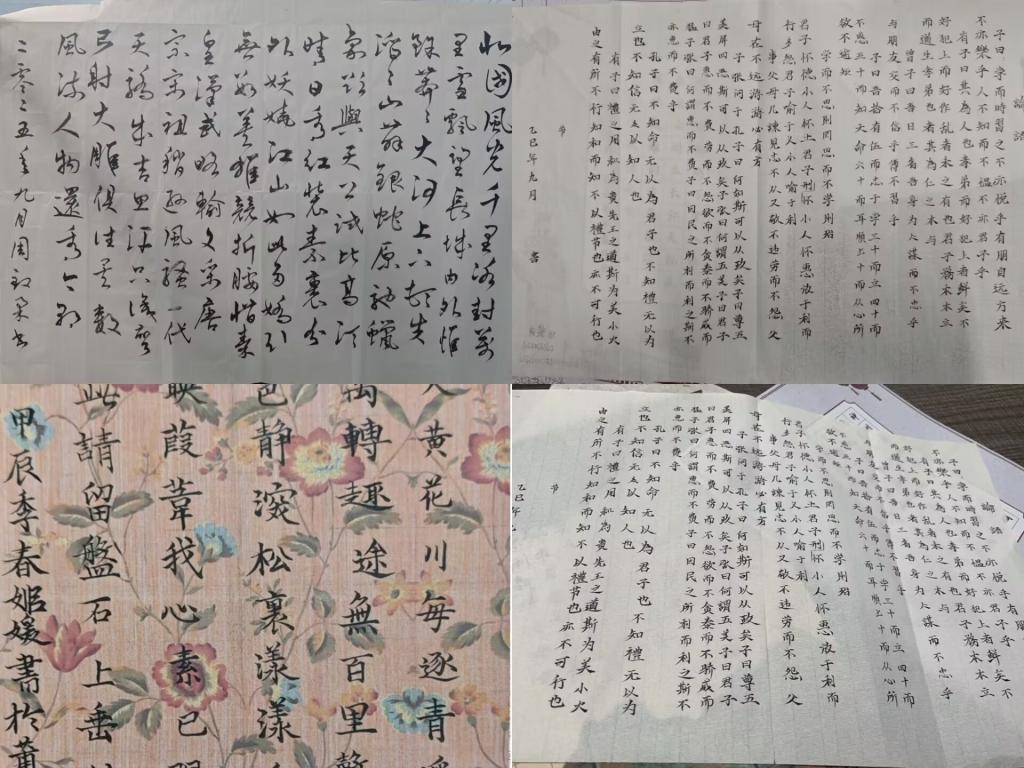 北國風光千里冰封萬
里雪飄望長城內外惟
餘莽々大河上下頓失
滔々山舞銀蛇原馳蠟
象欲與天公試比高須
晴日看紅裝素裹分
外妖嬈江山如此多嬌引
無數英雄競折腰惜秦
皇漢武略輸文采唐
宗宋祖稍遜風騷一代
天驕成吉思汗只識彎
弓射大雕俱往矣數
風流人物還看今朝
二零二五年九月周書
論語
子曰學而時習之不亦悅乎有朋自遠方來
不亦樂乎人不知而不愠不亦君子乎
有子曰其為人也孝弟而好犯上者鲜矣不
好犯上而好作乱者未之有也君子務本本立
而道生孝弟也者其為仁之本与
曾子曰吾日三省吾身为人謀而不忠乎
与朋友交而不信乎傳不習乎
子曰吾拾有伍而志于学三十而立四十而
不惑五十而知天命六十而耳順七十而从心所
欲不逾矩
学而不思則罔思而不学則殆
君子怀德小人怀土君子刑怀小人怀惠放于利而
行多怨君子喻于义小人喻于利
事父母几諫見志不从又敬不违劳而不怨父
母在不远游游必有方
子张问于孔子曰何如斯可以从政矣子曰尊五
美屏四恶斯可以从政矣子张曰何謂五美子曰君子
曰君子惠而不费劳而不怨欲而不贪泰而不驕威而
猛子张曰何謂惠而不费子曰因民之所利而利之斯不
亦惠而不費乎
孔子曰不知命无以為君子也不知禮无以为
立也不知信无以知人也
有子曰禮之用和為貴先王之道斯为美小大
由之有所不行知和而和不以禮节也亦不可行也
节
乙巳年九月 書
入黄花川每逐青
萬轉趣途無百里
色静深松裏漾漾
映葭葦我心素已
此請留盤石上垂
甲辰季春姬媛書於
論語
子曰學而時習之不亦悅乎有朋
不亦樂乎人不知而不愠不亦君子乎
有子曰其為人也孝弟而好犯上者鲜矣不
好犯上而好作乱者未之有也君子務本本立
而道生孝弟也者其為仁之本与
曾子曰吾日三省吾身为人謀而不忠乎
与朋友交而不信乎傳不習乎
子曰吾拾有伍而志于学三十而立四十而
不惑五十而知天命六十而耳順七十而从心所
欲不逾矩
学而不思則罔思而不学則殆
君子怀德小人怀土君子刑怀小人怀惠放于利而
行多怨君子喻于义小人喻于利
事父母几諫見志不从又敬不违劳而不怨父
母在不远游游必有方
子张问于孔子曰何如斯可以从政矣子曰尊五
美屏四恶斯可以从政矣子张曰何謂五美子曰君子
曰君子惠而不费劳而不怨欲而不贪泰而不驕威而
猛子张曰何謂惠而不费子曰因民之所利而利之斯不
亦惠而不費乎
孔子曰不知命无以為君子也不知禮无以为
立也不知信无以知人也
有子曰禮之用和為貴先王之道斯为美小大
由之有所不行知和而和不以禮节也亦不可行也
节
乙巳年